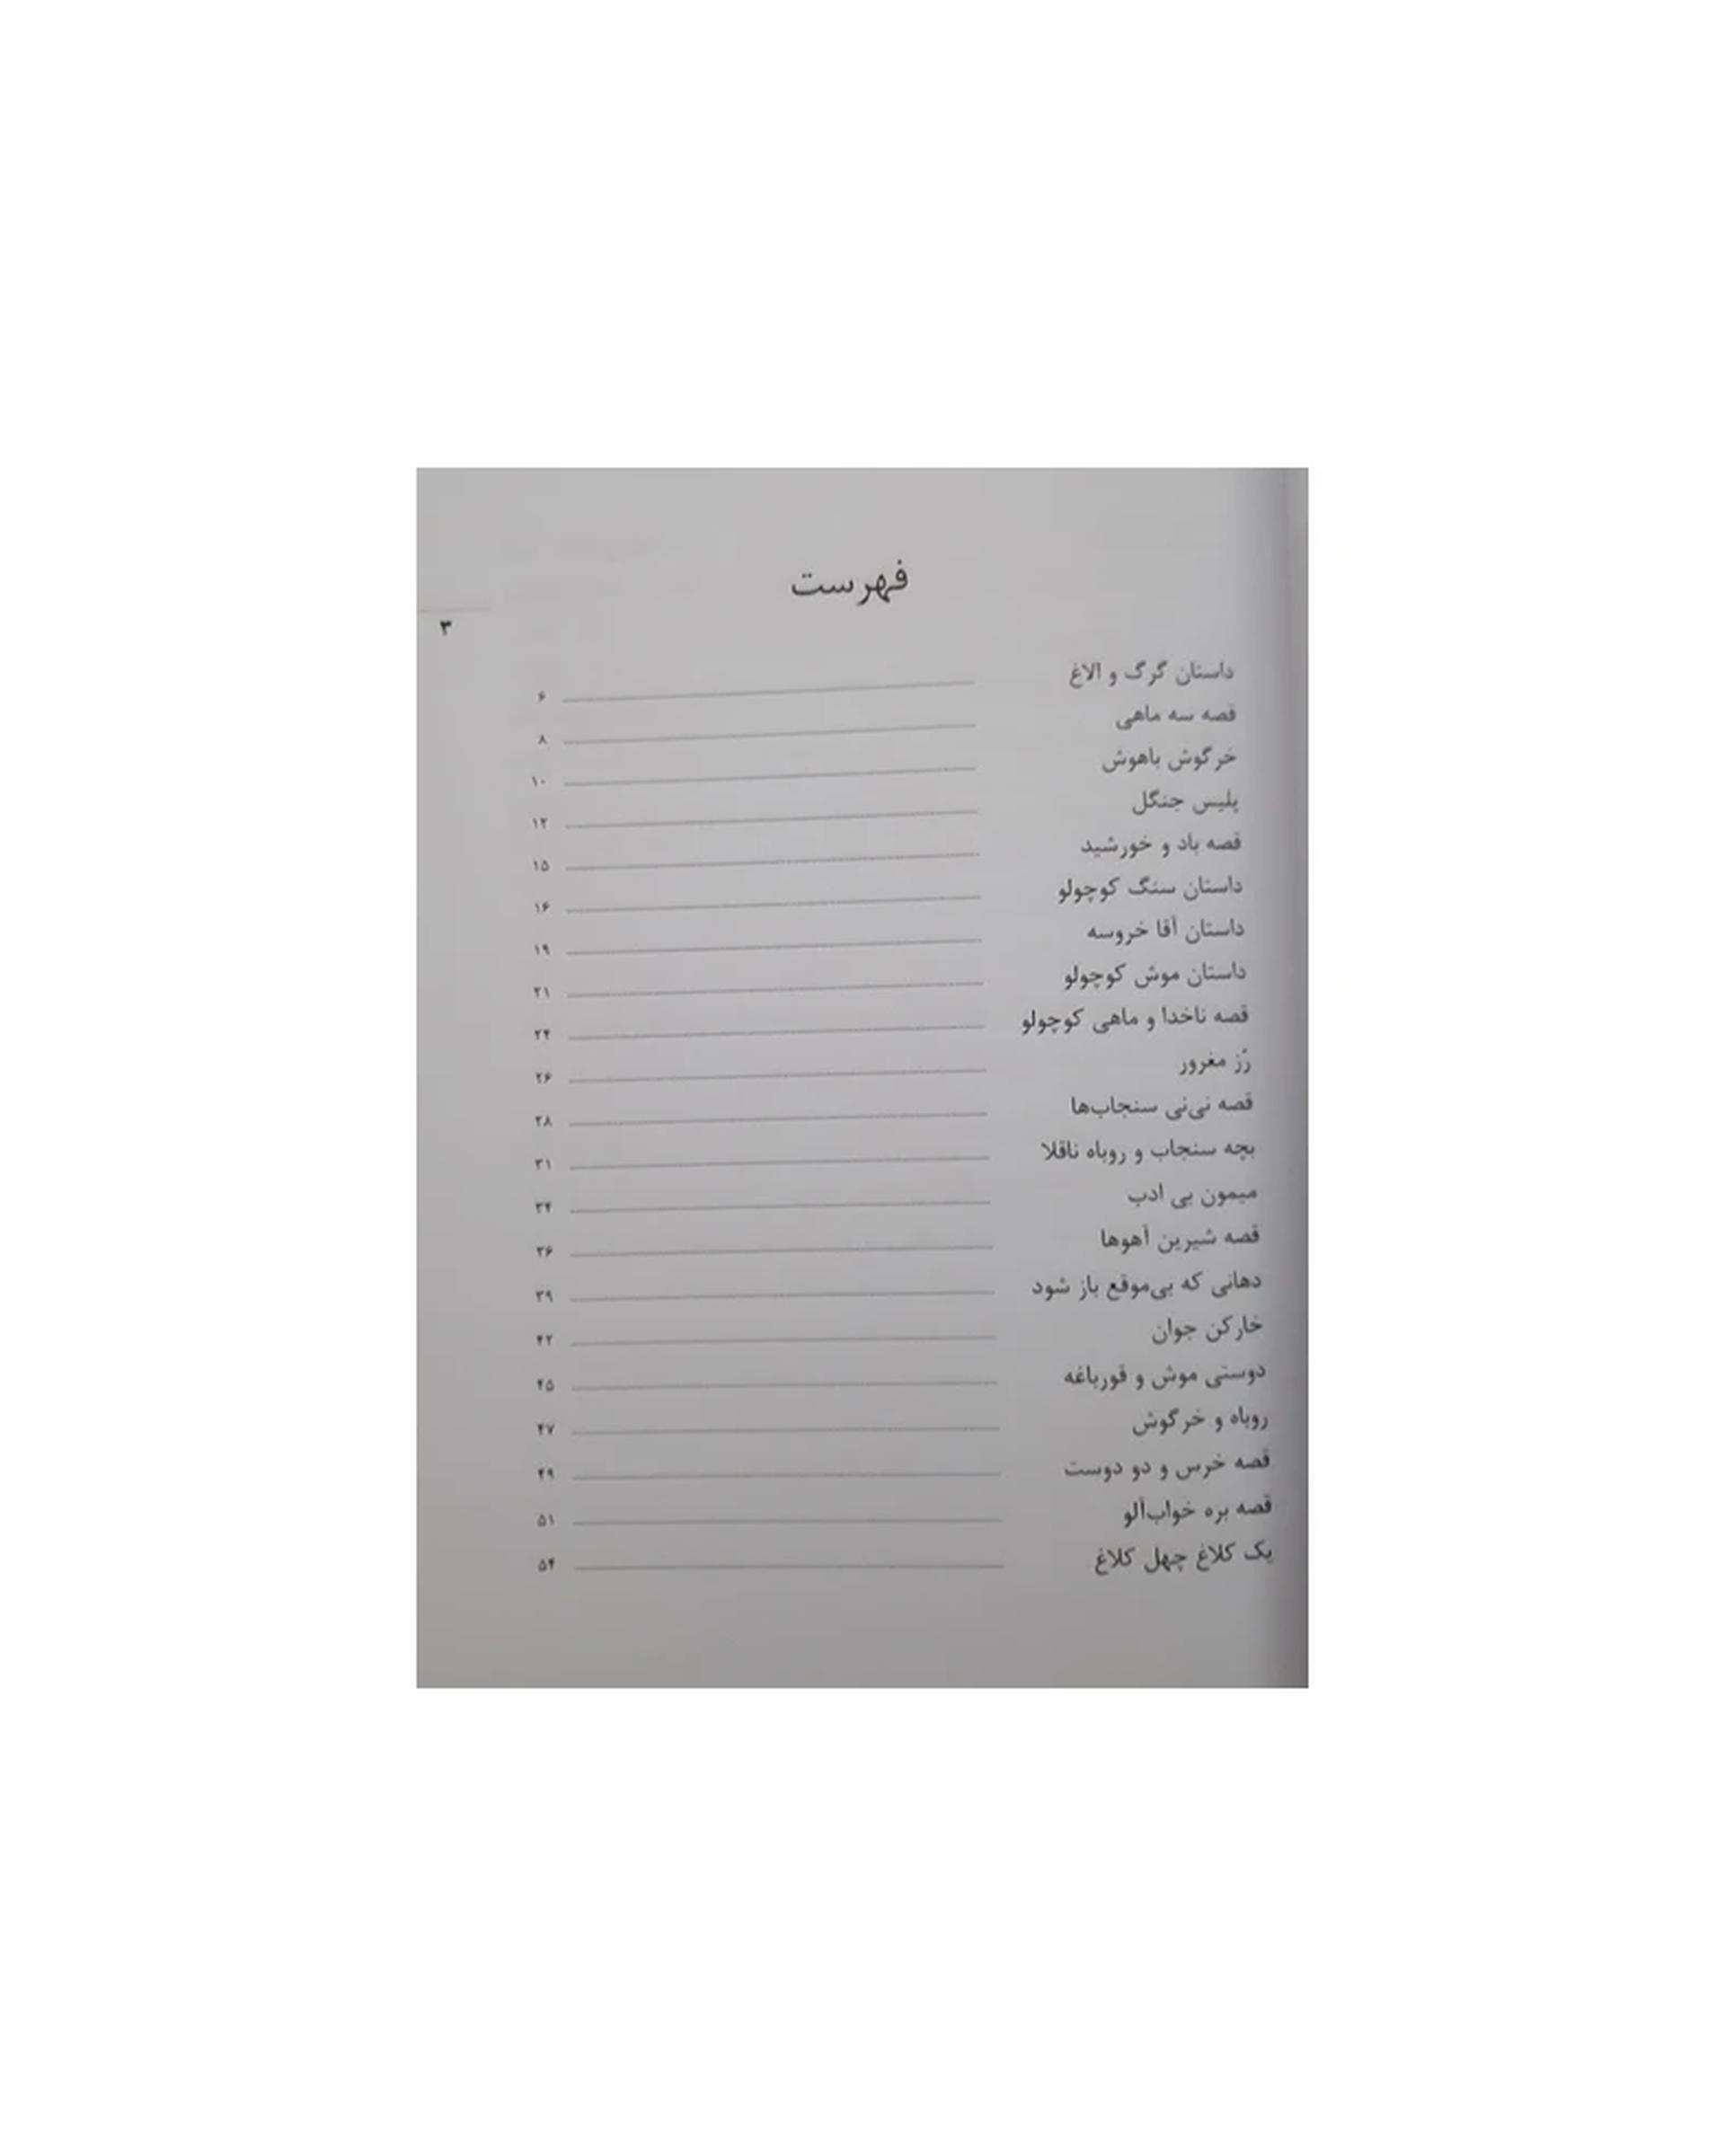 فهرست
۳
داستان گرگ و الاغ ۶
قصه سه ماهی ۸
خرگوش باهوش ۱۰
پلیس جنگل ۱۲
قصه باد و خورشید ۱۵
داستان سنگ کوچولو ۱۶
داستان آقا خروسه ۱۹
داستان موش کوچولو ۲۱
قصه ناخدا و ماهی کوچولو ۲۴
رُز مغرور ۲۶
قصه نی‌نی سنجاب‌ها ۲۸
بچه سنجاب و روباه ناقلا ۳۱
میمون بی ادب ۳۴
قصه شیرین آهوها ۳۶
دهانی که بی‌موقع باز شود ۳۹
خارکن جوان ۴۲
دوستی موش و قورباغه ۴۵
روباه و خرگوش ۴۷
قصه خرس و دو دوست ۴۹
قصه بره خواب‌آلو ۵۱
یک کلاغ چهل کلاغ ۵۴